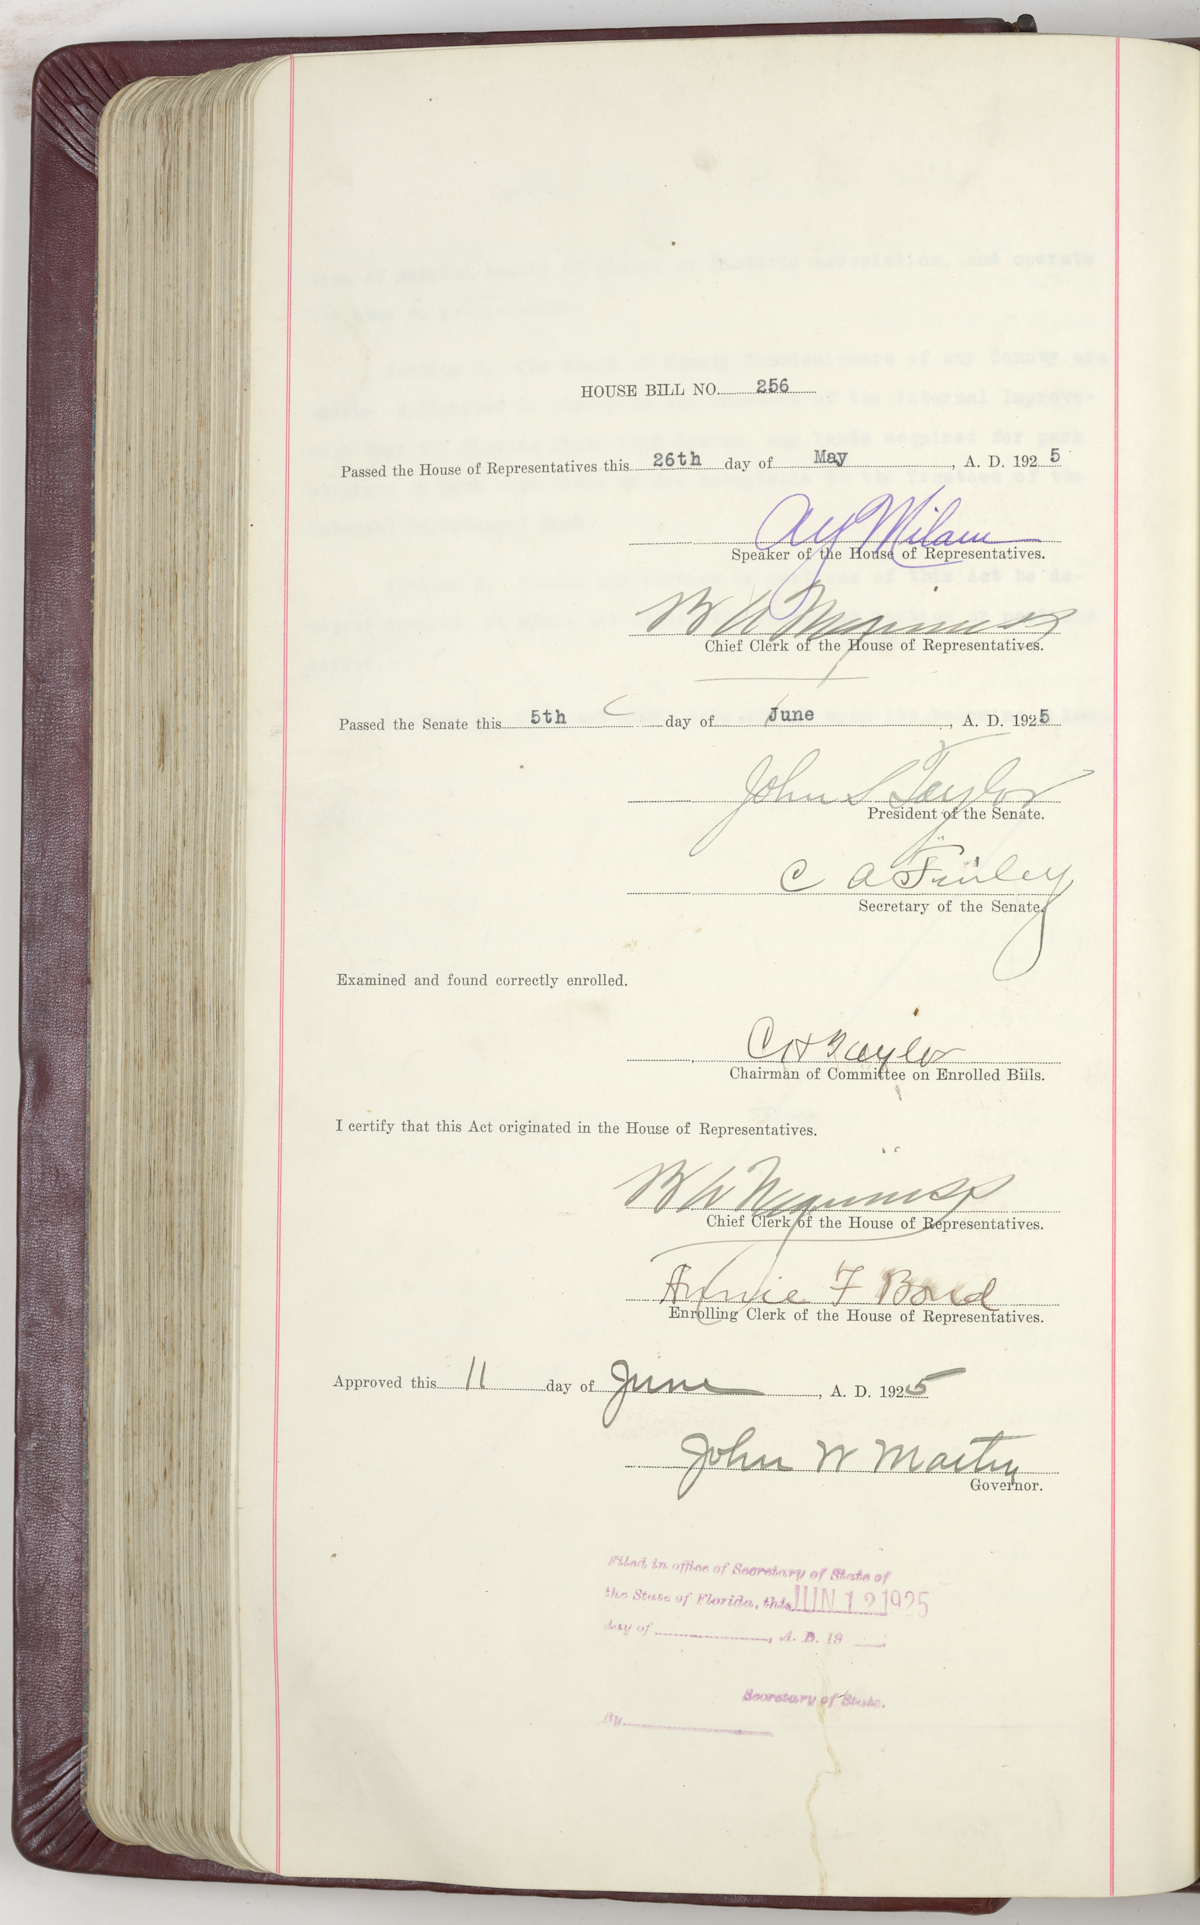 HOUSE BILL NO. 256
Passed the House of Representatives this 26th day of May, A. D. 1925
A Y Milam
Speaker of the House of Representatives.
B A Meginniss
Chief Clerk of the House of Representatives.
Passed the Senate this 5th day of June, A. D. 1925
John S Taylor
President of the Senate.
C A Finley
Secretary of the Senate.
Examined and found correctly enrolled.
C H Taylor
Chairman of Committee on Enrolled Bills.
I certify that this Act originated in the House of Representatives.
B A Meginniss
Chief Clerk of the House of Representatives.
Annie F Bond
Enrolling Clerk of the House of Representatives.
Approved this 11 day of June, A. D. 1925
John W Martin
Governor.
Filed in office of Secretary of State of
the State of Florida, this JUN 12 1925
day of , A. D. 19
Secretary of State.
By